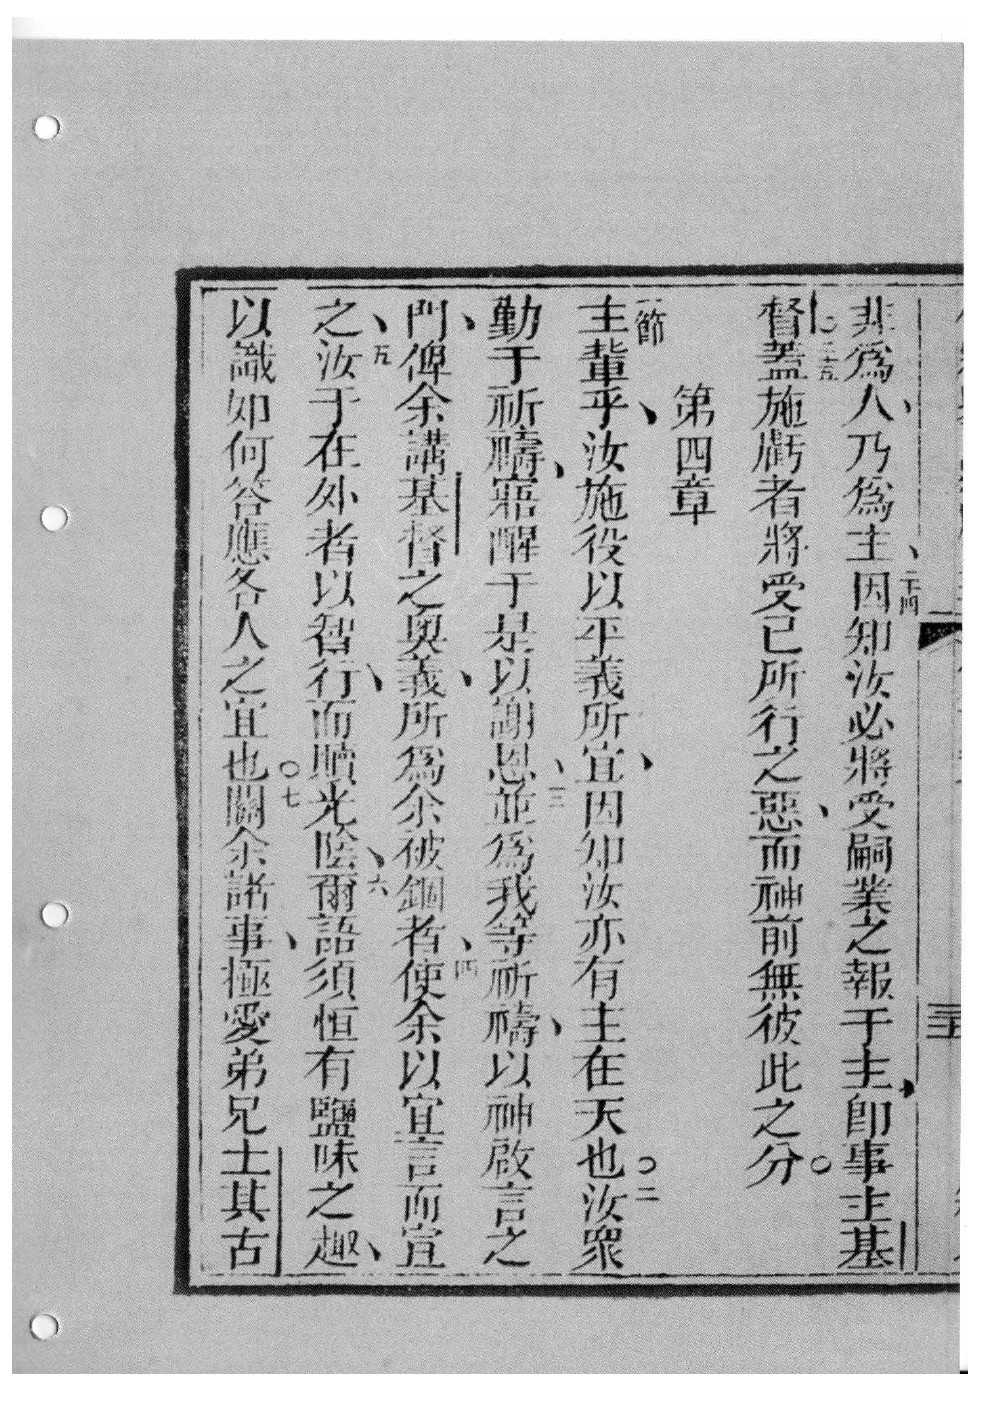 非爲人、乃爲主、二十四因知汝必將受嗣業之報于主、卽事主基
督○二十五蓋施虧者將受已所行之惡、而神前無彼此之分○
第四章
一節主輩乎、汝施役以平義所宜、因知汝亦有主在天也○二汝眾
勤于祈禱、寤醒于是以謝恩、三並爲我等祈禱、以神啟言之
門、俾余講基督之奧義、所爲余被錮者、四使余以宜言而宣
之、五汝于在外者以智行、而贖光陰、六爾語須恒有鹽味之趣、
以識如何答應各人之宜也○七關余諸事、極愛弟兄士其古
三五